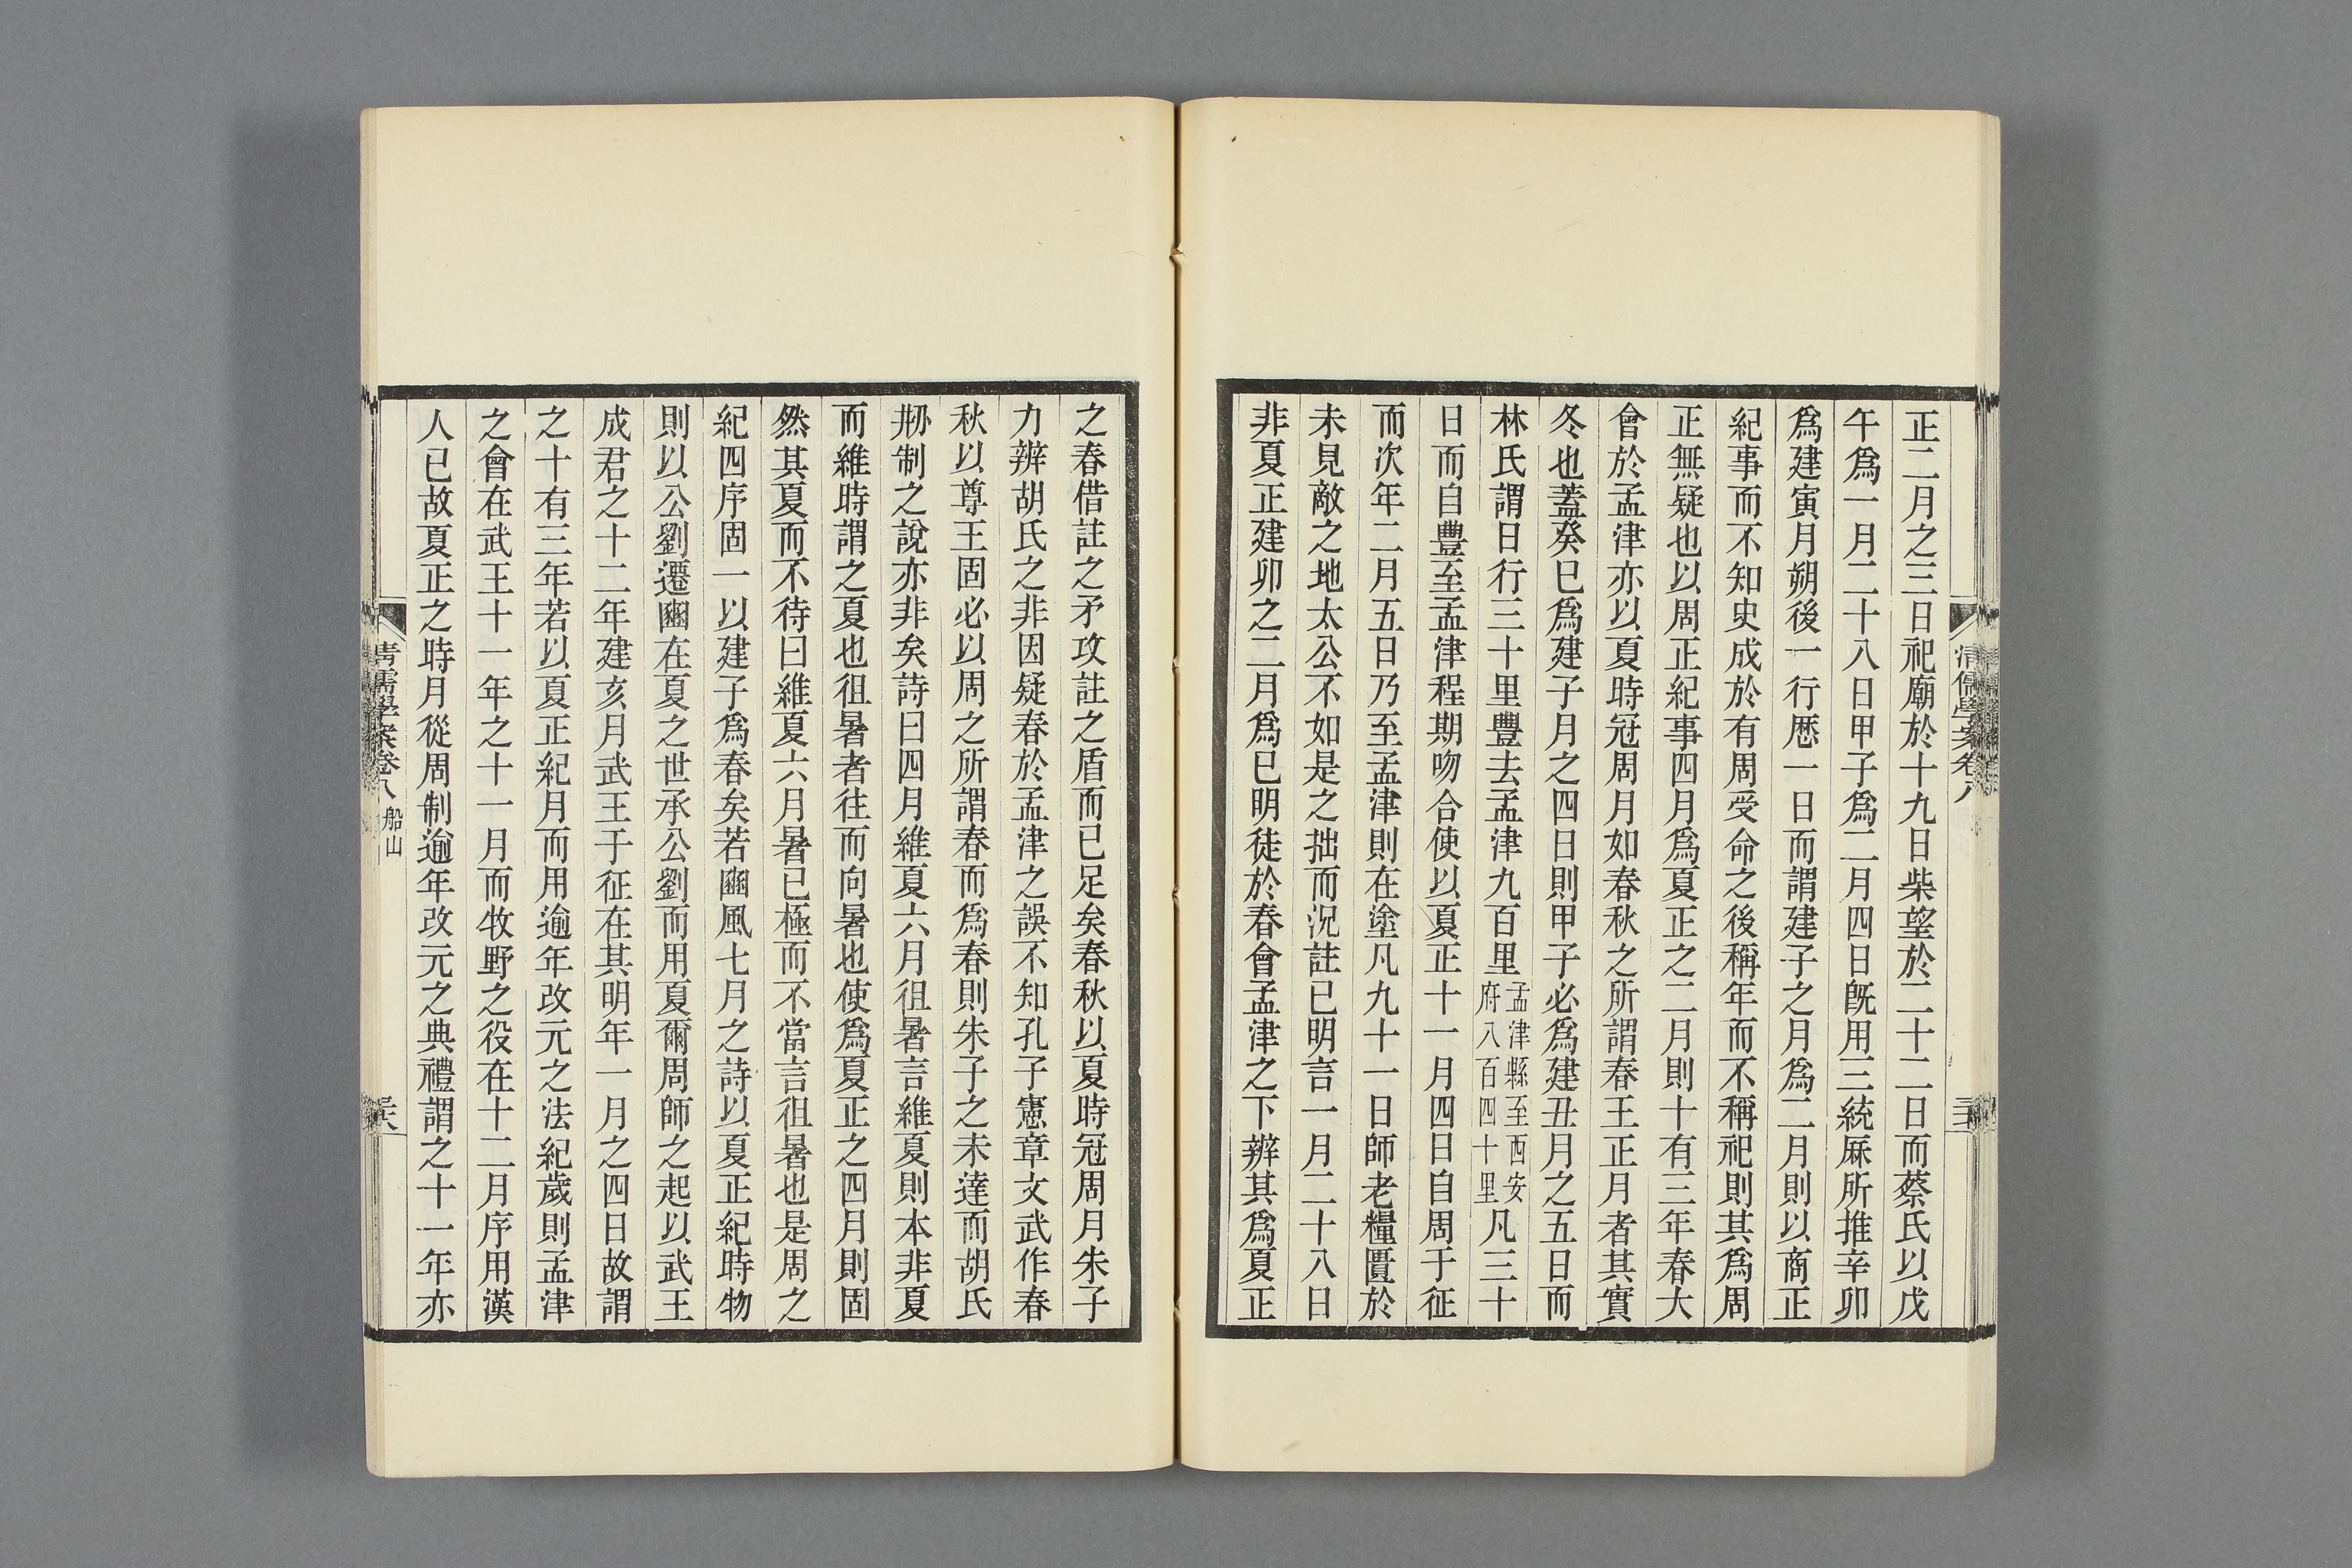 正二月之三日祀廟於十九日柴望於二十二日而蔡氏以戊
午爲一月二十八日甲子爲二月四日旣用三統厤所推辛卯
爲建寅月朔後一行厯一日而謂建子之月爲二月則以商正
紀事而不知史成於有周受命之後稱年而不稱祀則其爲周
正無疑也以周正紀事四月爲夏正之二月則十有三年春大
會於孟津亦以夏時冠周月如春秋之所謂春王正月者其實
冬也蓋癸巳爲建子月之四日則甲子必爲建丑月之五日而
林氏謂日行三十里豐去孟津九百里孟津縣至西安府八百四十里凡三十
日而自豐至孟津程期吻合使以夏正十一月四日自周于征
而次年二月五日乃至孟津則在塗凡九十一日師老糧匱於
未見敵之地太公不如是之拙而況註已明言一月二十八日
非夏正建卯之二月爲已明徒於春會孟津之下辨其爲夏正
清儒學案卷八
之春借註之矛攻註之盾而已足矣春秋以夏時冠周月朱子
力辨胡氏之非因疑春於孟津之誤不知孔子憲章文武作春
秋以尊王固必以周之所謂春而爲春則朱子之未達而胡氏
刱制之說亦非矣詩曰四月維夏六月徂暑言維夏則本非夏
而維時謂之夏也徂暑者往而向暑也使爲夏正之四月則固
然其夏而不待曰維夏六月暑已極而不當言徂暑也是周之
紀四序固一以建子爲春矣若豳風七月之詩以夏正紀時物
則以公劉遷豳在夏之世承公劉而用夏爾周師之起以武王
成君之十二年建亥月武王于征在其明年一月之四日故謂
之十有三年若以夏正紀月而用逾年改元之法紀歲則孟津
之會在武王十一年之十一月而牧野之役在十二月序用漢
人已故夏正之時月從周制逾年改元之典禮謂之十一年亦
清儒學案卷八 船山